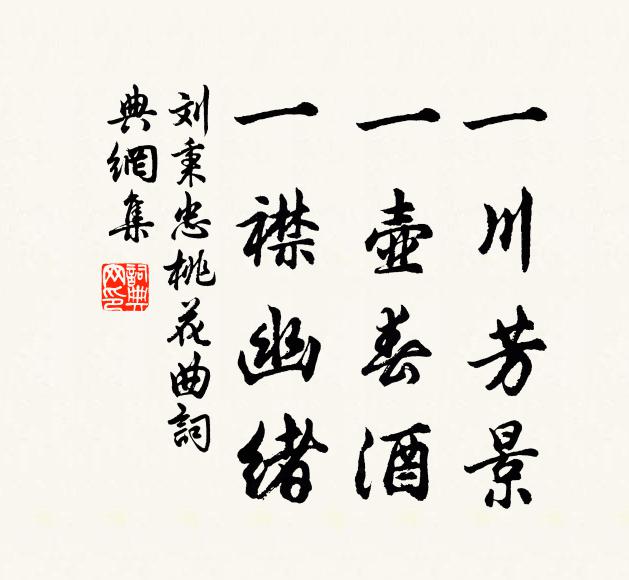 一川芳景
一壺春酒
一襟幽緒
刘秉忠桃花曲詞
典網集
詞典
网印